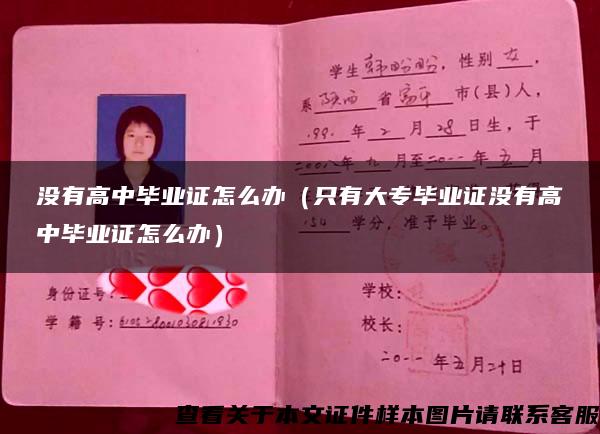 学生韩盼盼，性别女，
系陕西省富平市(县)人，
1991年2月28日生，于
二00八年九月至二0一一年五月
没有高中毕业证怎么办（只有大专毕业证没有高
中毕业证怎么办）
154学分，准予毕业。
身份证号：
学籍号：
学校：
校长：
二0一一年五月二十日
查看关于本文证件样本图片请联系客服